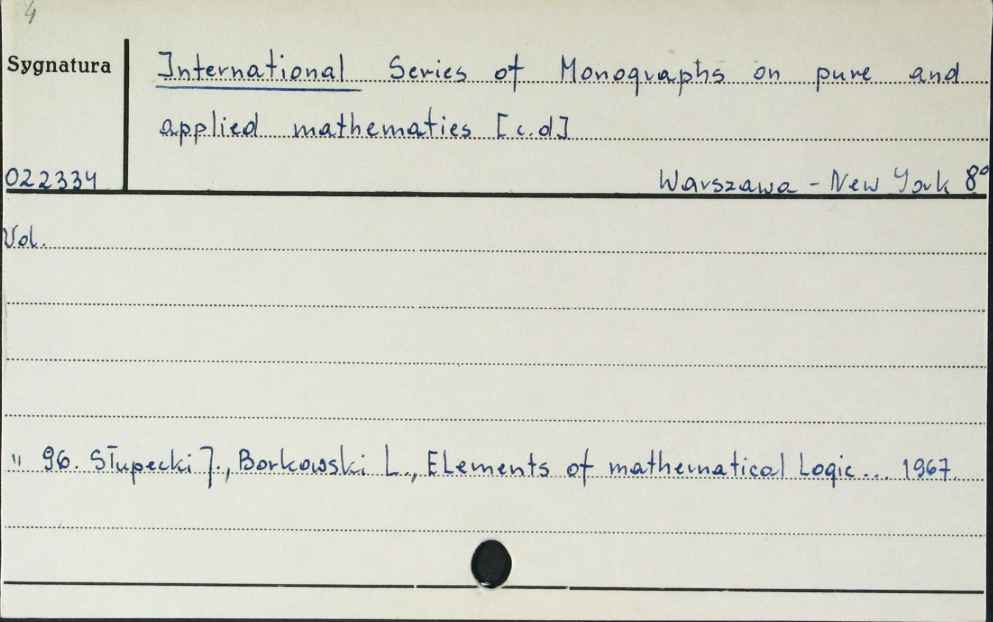 4
Sygnatura
International Series of Monographs on pure and
applied mathematics [c.d]
022334
Warszawa - New York 8°
Vol.
" 96. Słupecki J., Borkowski L., Elements of mathematical Logic... 1967.